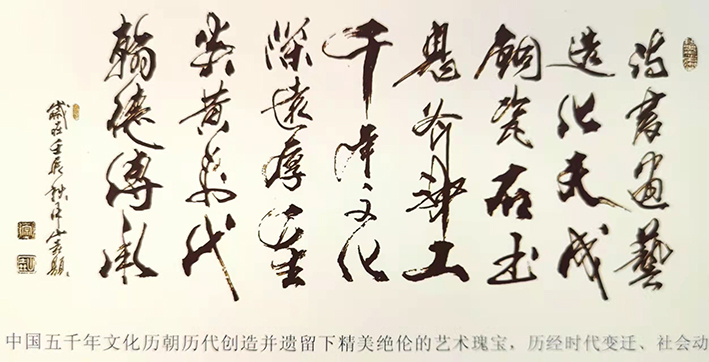 诗書画藝
造化天成
铜瓷石玉
鬼斧神工
千年文化
深遠厚重
炎黄万代
翰德傳承
歲在壬辰秋月
中国五千年文化历朝历代创造并遗留下精美绝伦的艺术瑰宝，历经时代变迁、社会动